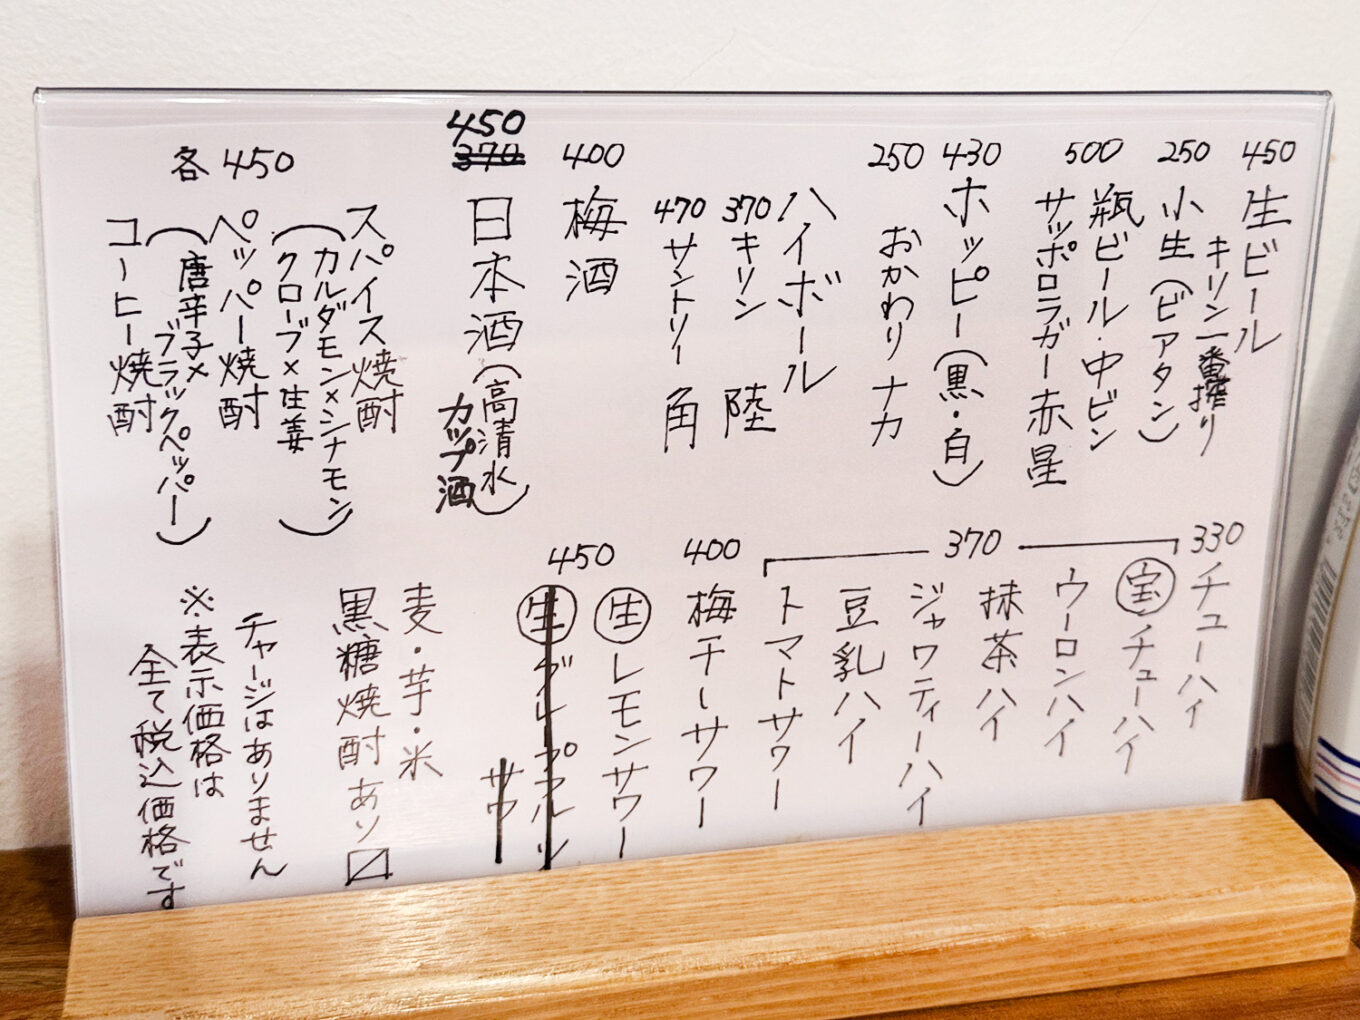 450
生ビール
キリン一番搾り
250
小生(ビアタン)
500
瓶ビール・中ビン
サッポロラガー赤星
430
ホッピー(黒・白)
250
おかわりナカ
ハイボール
370
キリン 陸
470
サントリー 角
400
梅酒
450
370
日本酒(高清水)
カップ酒
各450
スパイス焼酎
(カルダモン×シナモン
クローブ×生姜)
ペッパー焼酎
(唐辛子×
ブラックペッパー)
コーヒー焼酎
330
チューハイ
370
宝チューハイ
ウーロンハイ
抹茶ハイ
ジャワティーハイ
豆乳ハイ
トマトサワー
400
梅干ーサワー
450
生レモンサワー
生グレープフルーツ
サワー
麦・芋・米
黒糖焼酎あり〼
チャージはありません
※表示価格は
全て税込価格です